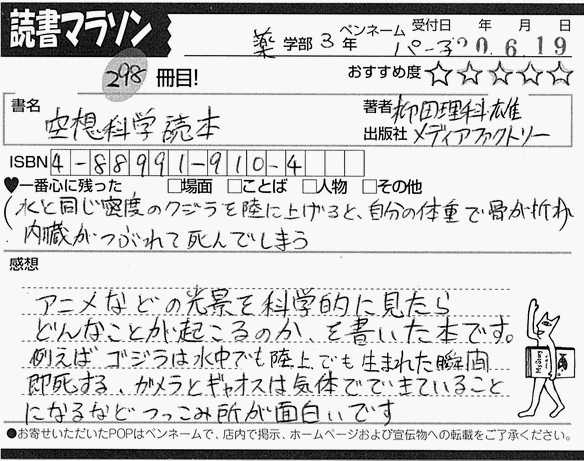 読書マラソン
薬 学部 3 年 ペンネーム パーコ 受付日 年 月 日 20.6.19
298 冊目! おすすめ度 ☆☆☆☆☆
書名 空想科学読本
著者 柳田理科雄
出版社 メディアファクトリー
ISBN 4-88991-910-4
♥一番心に残った □場面 □ことば □人物 □その他
(水と同じ密度のクジラを陸に上げると、自分の体重で骨が折れ
内臓がつぶれて死んでしまう
感想
アニメなどの光景を科学的に見たら
どんなことが起こるのか、を書いた本です。
例えばゴジラは水中でも陸上でも生まれた瞬間
即死する、ガメラとギャオスは気体でできていること
になるなどつっこみ所が面白いです
●お寄せいただいたPOPはペンネームで、店内で掲示、ホームページおよび宣伝物への転載をご了承ください。